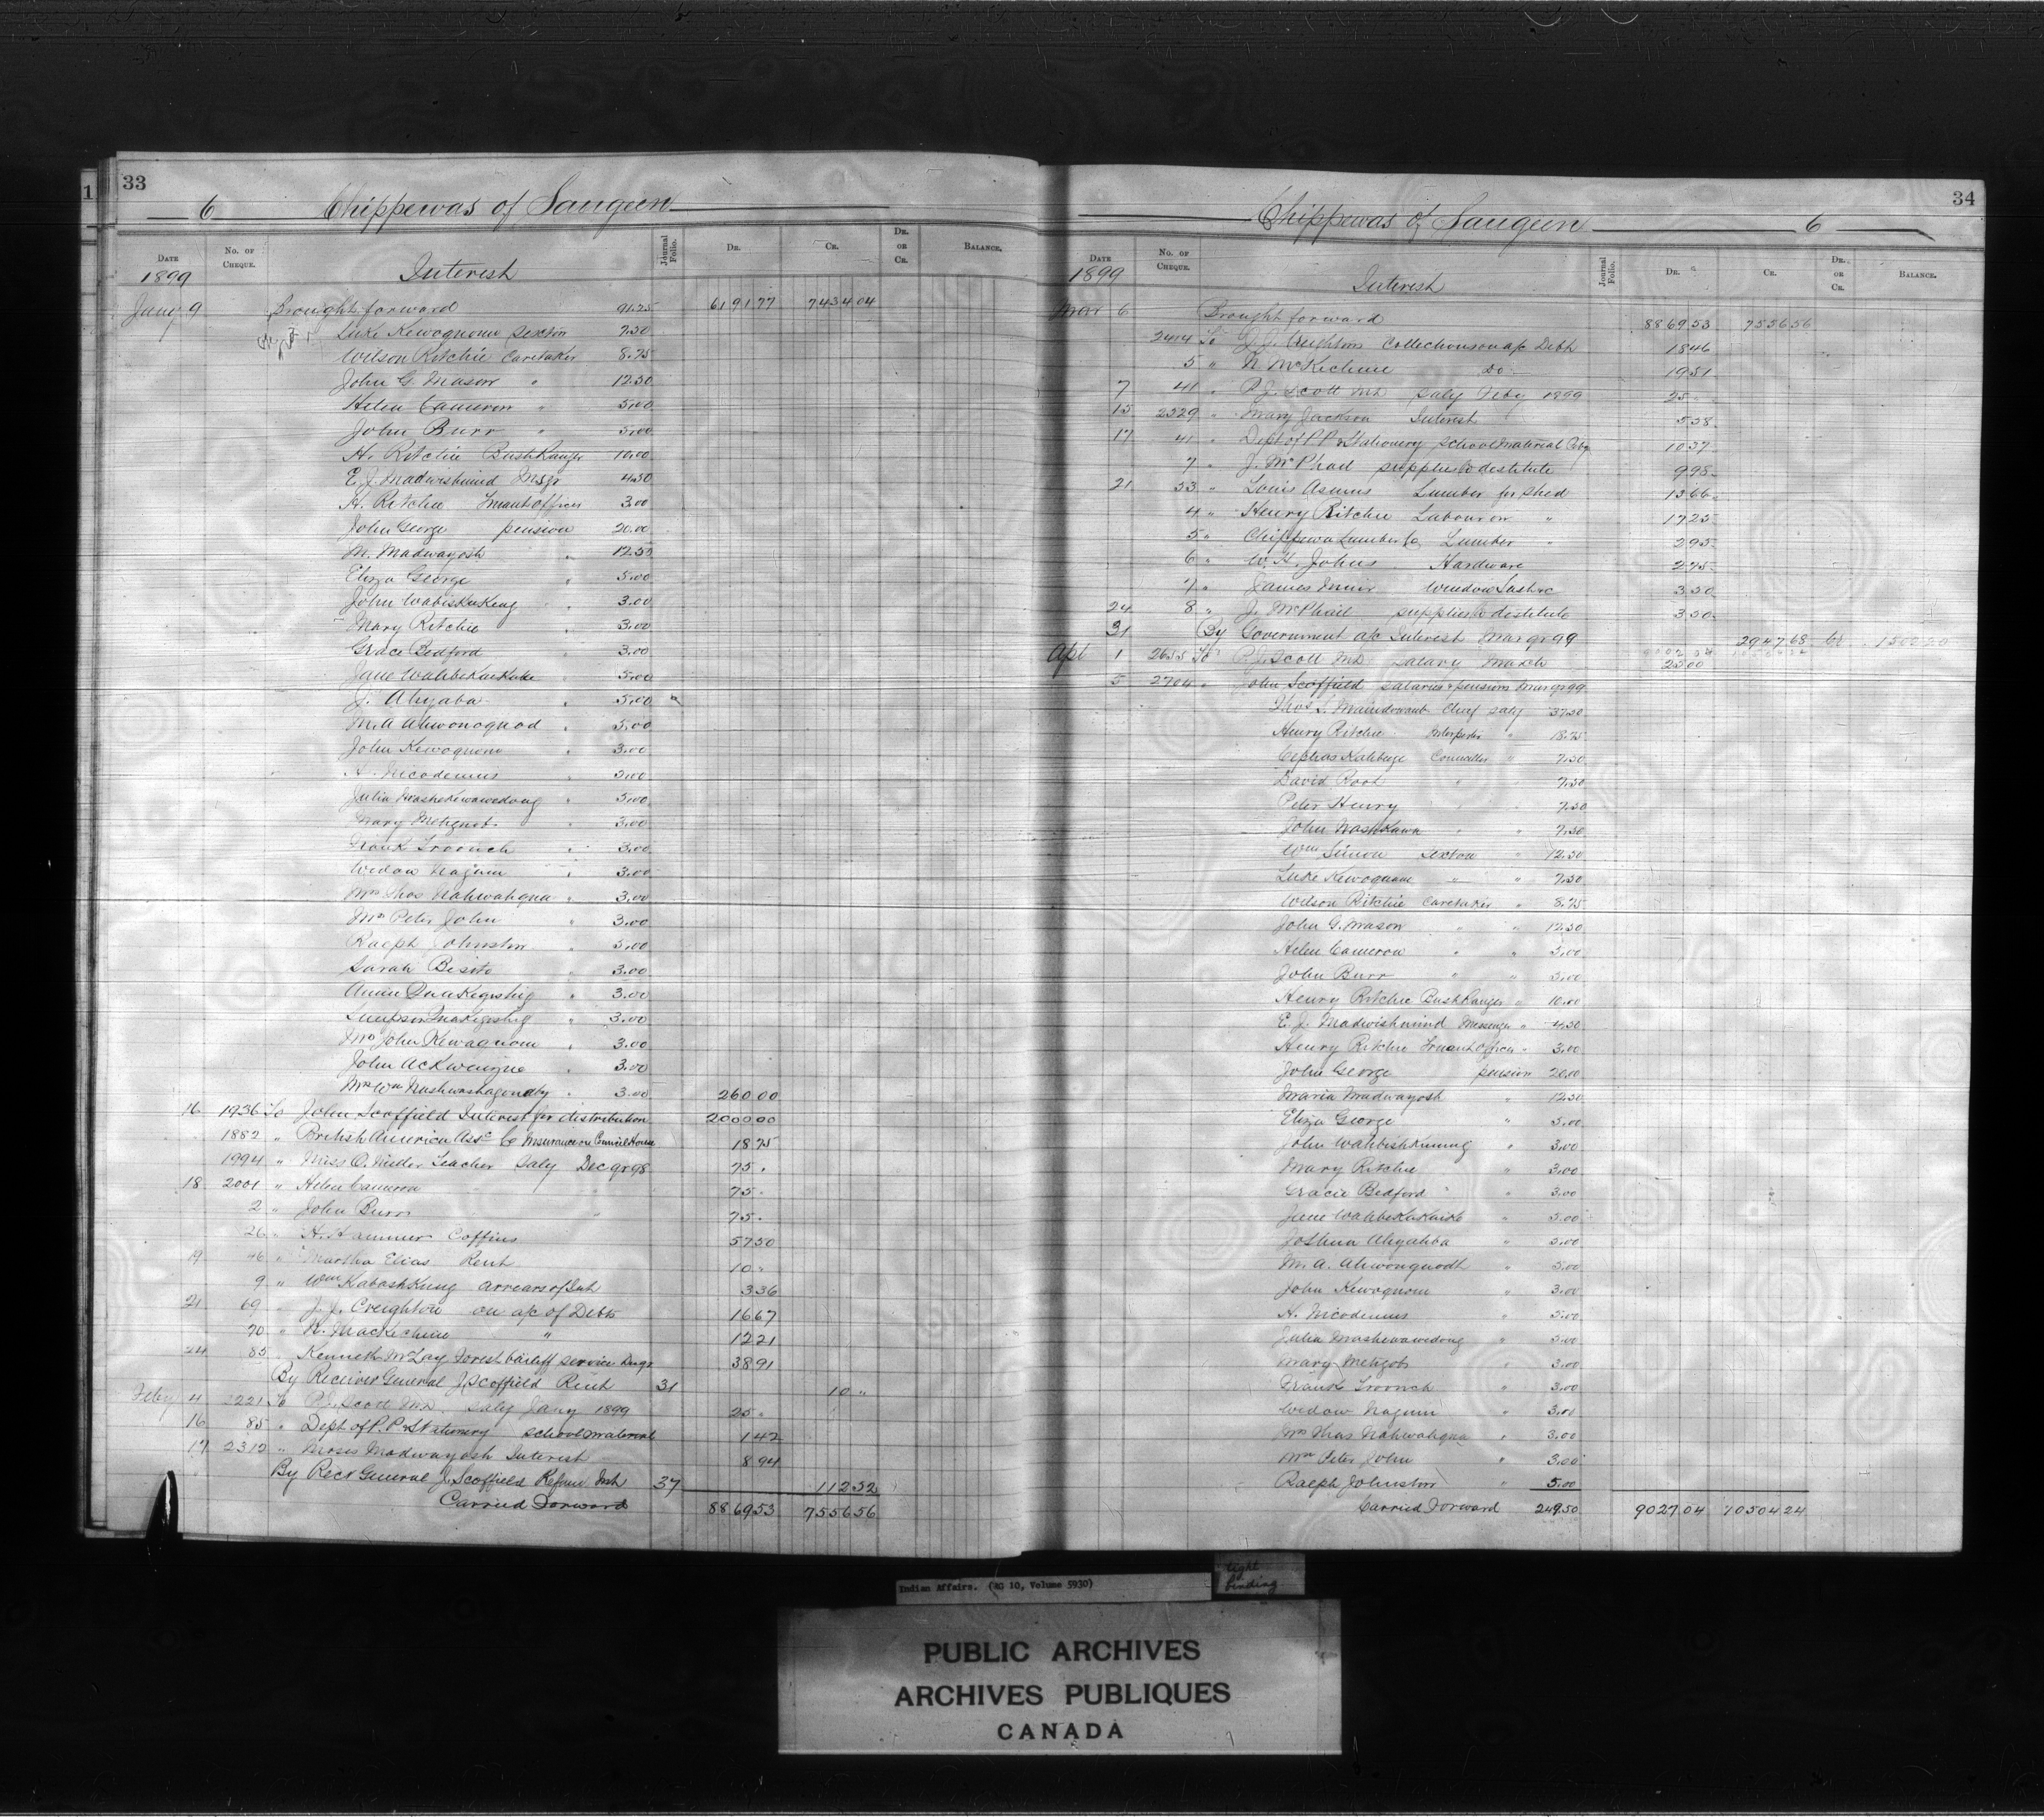 33
6 Chippewas of Saugeen
Date No. of Cheque. Journal Folio. Dr. Cr. Dr. or Cr. Balance.
1899 Interest
Jany 9 Brought forward 91.25 6191 77 7434 04
Luke Kewaquom Sexton 7.50
Wilson Ritchie Caretaker 8.75
John G. Mason " 12.50
Helen Cameron " 5.00
John Burr " 5.00
H. Ritchie Bush Ranger 10.00
E. J. Madwishmind Msgr 4.50
H. Ritchie Truant Officer 3.00
John George pension 20.00
M. Madwayosh " 12.50
Eliza George " 5.00
John Wabiskukeng " 3.00
Mary Ritchie " 3.00
Grace Bedford " 3.00
Jane Wahbekaikake " 5.00
J. Ahyaba " 5.00
M. A. Ahwonoquod " 5.00
John Kewaquom " 3.00
H. Nicodemus " 5.00
Julia Mashekewawedong " 5.00
Mary Metigob " 3.00
Frank Troonch " 3.00
Widow Nagum " 3.00
Mrs Thos Nahwahqua " 3.00
Mrs Peter John " 3.00
Ralph Johnston " 5.00
Sarah Besito " 3.00
Annie Quakegishig " 3.00
Simpson Quakegishig " 3.00
Mrs John Kewaquom " 3.00
John Ackwenzie " 3.00
Mrs Wm Nashwashagonaby " 3.00 260 00
16 1936 To John Scoffield Interest for distribution 2000 00
1882 " British America Assce Co Insurance on Council House 18 75
1994 " Miss O. Miller Teacher Saly Dec qr 98 75 "
18 2001 " Helen Cameron " 75 "
2 " John Burr " 75 "
26 " H. Hammer Coffins 57 50
19 46 " Martha Elias Rent 10 "
9 " Wm Kaboshkung arrears of Int 3 36
21 69 " J. J. Creighton on a/c of Debts 16 67
70 " N. MacKechnie " 12 21
24 85 " Kenneth McLay Forest bailiff service Dec qr 38 91
By Receiver General J Scoffield Rent 31 10 "
Feby 4 2221 To P. J. Scott M.D. Saly Jany 1899 25 "
16 85 " Dept of P. P. & Stationery school material 1 42
17 2312 " Moses Madwayosh Interest 8 94
By Recr General J. Scoffield Refund Int 37 112 52
Carried Forward 8869 53 7556 56
34
Chippewas of Saugeen 6
Date No. of Cheque. Journal Folio. Dr. Cr. Dr. or Cr. Balance.
1899 Interest
Mar 6 Brought forward 8869 53 7556 56
2414 To J. J. Creighton Collections on a/c Debts 18 46
5 " N McKechnie Do 19 51
7 41 " P. J. Scott MD Saly Feby 1899 25 "
15 2529 " Mary Jackson Interest 5 58
17 41 " Dept of P. P. & Stationery school material Feby 10 37
7 " J. McPhail supplies to destitute 9 98
21 33 " Louis Asmus Lumber for shed 13 66
4 " Henry Ritchie Labour on " 17 25
5 " Chippewa Lumber Co Lumber " 2 95
6 " W. H. Johns Hardware 2 75
7 " James Muir Window Sash &c 3 50
24 8 " J. McPhail supplies to destitute 3 50
31 By Government a/c Interest Mar qr 99 2947 68
9002 04 10504 24
Apl 1 2655 To P. J. Scott MD. Salary March 25 00
5 2704 " John Scoffield salaries & pensions Mar qr 99
Thos S. Maindowaub Chief Saly 37.50
Henry Ritchie Interpreter " 18.75
Cephas Kahbege Councillor " 7.50
David Root " " 7.50
Peter Henry " " 7.50
John Nashkawa " " 7.50
Wm Simon Sexton " 12.50
Luke Kewaquom " " 7.50
Wilson Ritchie Caretaker " 8.75
John G. Mason " " 12.50
Helen Cameron " " 5.00
John Burr " " 5.00
Henry Ritchie Bush Ranger " 10.00
E. J. Madwishmind Messenger " 4.50
Henry Ritchie Truant Officer " 3.00
John George pension 20.00
Maria Madwayosh " 12.50
Eliza George " 5.00
John Wahbishkuung " 3.00
Mary Ritchie " 3.00
Gracie Bedford " 3.00
Jane Wahbekakaikk " 5.00
Joshua Ahyahba " 5.00
M. A. Ahwonquodh " 5.00
John Kewaquom " 3.00
H. Nicodemus " 5.00
Julia Mashewawedong " 5.00
Mary Metigob " 3.00
Frank Troonch " 3.00
Widow Nagum " 3.00
Mrs Thos Nahwahqua " 3.00
Mrs Peter John " 3.00
Ralph Johnston " 5.00
Carried Forward 249.50 9027 04 10504 24
Indian Affairs. (RG 10, Volume 5930)
tight
binding
PUBLIC ARCHIVES
ARCHIVES PUBLIQUES
CANADA